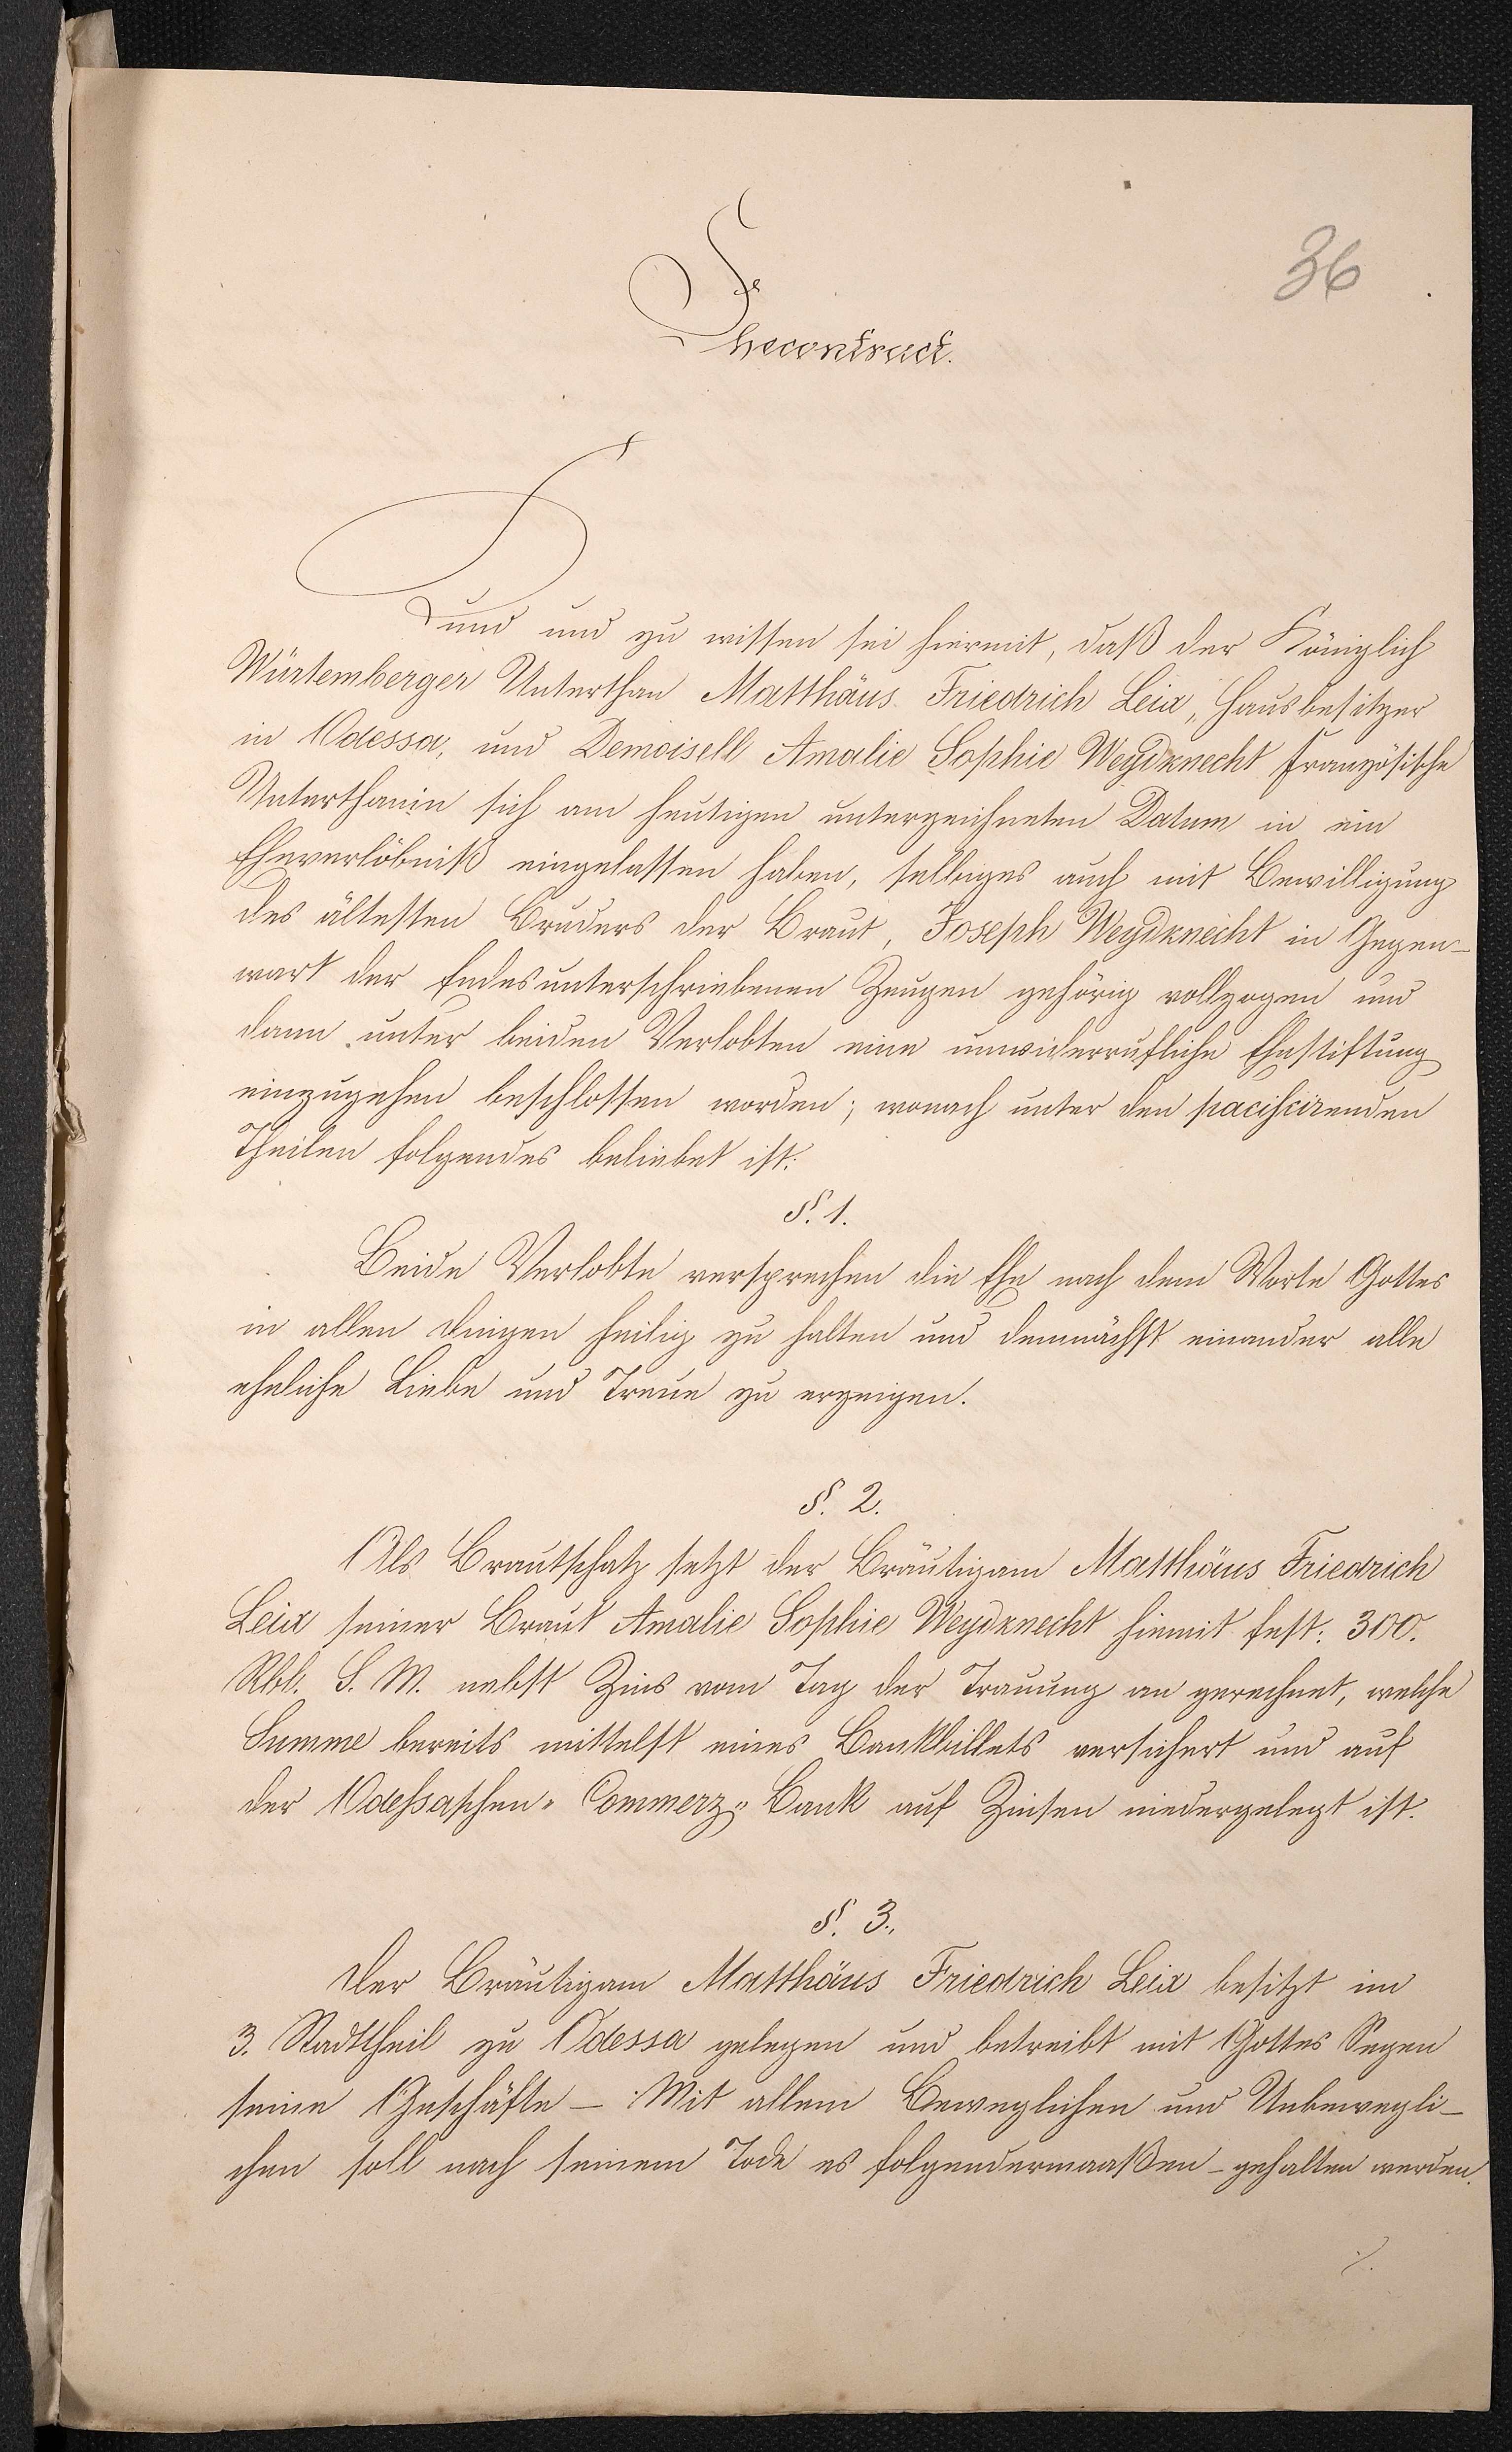 36
Ehecontract.
Kund und zu wissen sei hiermit, daß der Königlich
Würtemberger Unterthan Matthäus Friedrich Leix, Hausbesitzer
in Odessa, und Demoisell Amalie Sophie Weydknecht Französische
Unterthanin sich am heutigen unterzeichneten Datum in ein
Eheverlöbniß eingelassen haben, selbiges auch mit Bewilligung
des ältesten Bruders der Braut, Joseph Weydknecht in Gegen-
wart der Endesunterschriebenen Zeugen gehörig vollzogen und
dann unter beiden Verlobten eine unwiderrufliche Ehestiftung
einzugehen beschlossen worden; wonach unter den paciscirenden
Theilen folgendes beliebet ist:
§. 1.
Beide Verlobte versprechen die Ehe nach dem Worte Gottes
in allen Dingen heilig zu halten und demnächst einander alle
eheliche Liebe und Treue zu erzeigen.
§. 2.
Als Brautschatz setzt der Bräutigam Matthäus Friedrich
Leix seiner Braut Amalie Sophie Weydknecht hiemit fest: 300.
Rbl. S. M. nebst Zins vom Tag der Trauung an gerechnet, welche
Summe bereits mittelst eines Bankbillets versichert und auf
der Odessaschen- Commerz- Bank auf Zinsen niedergelegt ist.
§. 3.
Der Bräutigam Matthäus Friedrich Leix besitzt im
3. Stadttheil zu Odessa gelegen und betreibt mit Gottes Segen
seine Geschäfte – Mit allem Beweglichen und Unbewegli-
chen soll nach seinem Tode es folgendermaaßen - gehalten werden.
·/.